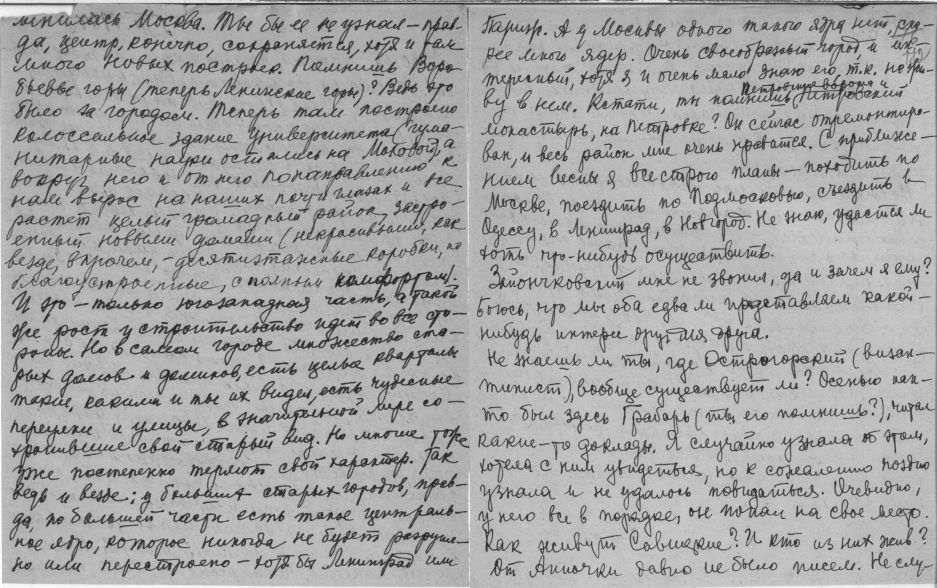 менилась Москва. Ты бы ее не узнал – прав-
да, центр, конечно, сохраняется, хотя и там
много новых построек. Помнишь Воро-
бьевы горы (теперь Ленинские горы)? Ведь это
было за городом. Теперь там построено
колоссальное здание Университета (гума-
нитарные науки остались на Моховой), а
вокруг него и от него по направлению к
нам вырос на наших почти глазах и все
растет целый громадный район, застро-
енный новыми домами (некрасивыми, как
везде, впрочем, – десятиэтажные коробки, но
благоустроенные, с полным комфортом).
И это – только югозападная часть, а такой
же рост и строительство идет во все сто-
роны. Но в самом городе множество ста-
рых домов и домиков, есть целые кварталы
такие, какими и ты их видел, есть чудесные
переулки и улицы, в значительной мере со-
хранившие свой старый вид. Но многие тоже
уже постепенно теряют свой характер. Так
ведь и везде; у больших старых городов, прав-
да, по большей части есть такое централь-
ное ядро, которое никогда не будет разруше-
но или перестроено – хотя бы Ленинград или
Париж. А у Москвы одного такого ядра нет, ско-
рее много ядер. Очень своеобразный город и ин-
тересный, хотя я и очень мало знаю его, т.к. не жи-
Петровские ворота и
ву в нем. Кстати, ты помнишь Петровский
монастырь, на Петровке? Он сейчас отремонтиро-
ван, и весь район мне очень нравится. С приближе-
нием весны я все строю планы – походить по
Москве, поездить по Подмосковью, съездить в
Одессу, в Ленинград, в Новгород. Не знаю, удастся ли
хоть что-нибудь осуществить.
Зайончковский мне не звонил, да и зачем я ему?
Боюсь, что мы оба едва ли представляем какой-
нибудь интерес друг для друга.
Не знаешь ли ты, где Острогорский (визан-
тинист), вообще существует ли? Осенью как-
то был здесь Грабарь (ты его помнишь?), читал
какие-то доклады. Я случайно узнала об этом,
хотела с ним увидеться, но к сожалению поздно
узнала и не удалось повидаться. Очевидно,
у него все в порядке, он попал на свое место.
Как живут Савицкие? И кто из них жив?
От Анночки давно не было писем. Не слу-